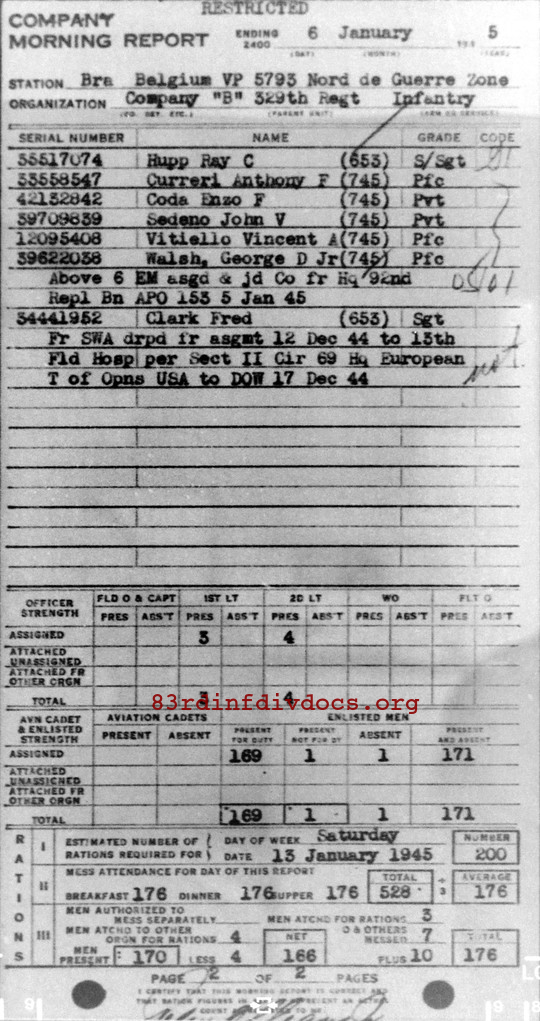 RESTRICTED
COMPANY
MORNING REPORT ENDING 2400 6 January 194 5
(DAY) (MONTH) (YEAR)
STATION Bra Belgium VP 5793 Nord de Guerre Zone
ORGANIZATION Company "B" 329th Regt Infantry
(CO. DET. ETC.) (PARENT UNIT) (ARM OR SERVICE)
SERIAL NUMBER NAME GRADE CODE
35517074 Rupp Ray C (653) S/Sgt
33558547 Curreri Anthony F (745) Pfc
42132842 Coda Enzo F (745) Pvt
39709839 Sedeno John V (745) Pvt
12095408 Vitiello Vincent A (745) Pfc
39622038 Walsh, George D Jr (745) Pfc
Above 6 EM asgd & jd Co fr Hq 92nd
Repl Bn APO 153 5 Jan 45
34441952 Clark Fred (653) Sgt
Fr SWA drpd fr asgmt 12 Dec 44 to 13th
Fld Hosp per Sect II Cir 69 Hq European
T of Opns USA to DOW 17 Dec 44
OFFICER STRENGTH FLD O & CAPT 1ST LT 2D LT WO FLT O
PRES ABS'T PRES ABS'T PRES ABS'T PRES ABS'T PRES ABS'T
ASSIGNED 3 4
ATTACHED UNASSIGNED
ATTACHED FR OTHER ORGN
TOTAL 3 4
83rdinfdivdocs.org
AVN CADET & ENLISTED STRENGTH AVIATION CADETS ENLISTED MEN
PRESENT ABSENT PRESENT FOR DUTY PRESENT NOT FOR DY ABSENT PRESENT AND ABSENT
ASSIGNED 169 1 1 171
ATTACHED UNASSIGNED
ATTACHED FR OTHER ORGN
TOTAL 169 1 1 171
RATIONS
I ESTIMATED NUMBER OF RATIONS REQUIRED FOR DAY OF WEEK Saturday NUMBER
DATE 13 January 1945 200
II MESS ATTENDANCE FOR DAY OF THIS REPORT TOTAL ÷ 3 AVERAGE
BREAKFAST 176 DINNER 176 SUPPER 176 528 176
III MEN AUTHORIZED TO MESS SEPARATELY MEN ATCHD FOR RATIONS 3
MEN ATCHD TO OTHER ORGN FOR RATIONS 4 NET O & OTHERS MESSED 7 TOTAL
MEN PRESENT 170 LESS 4 166 PLUS 10 176
PAGE 2 OF 2 PAGES
I CERTIFY THAT THIS MORNING REPORT IS CORRECT AND
THAT RATION FIGURES IN REPRESENT AN ACTUAL
COUNT TO ME:
9
9 8